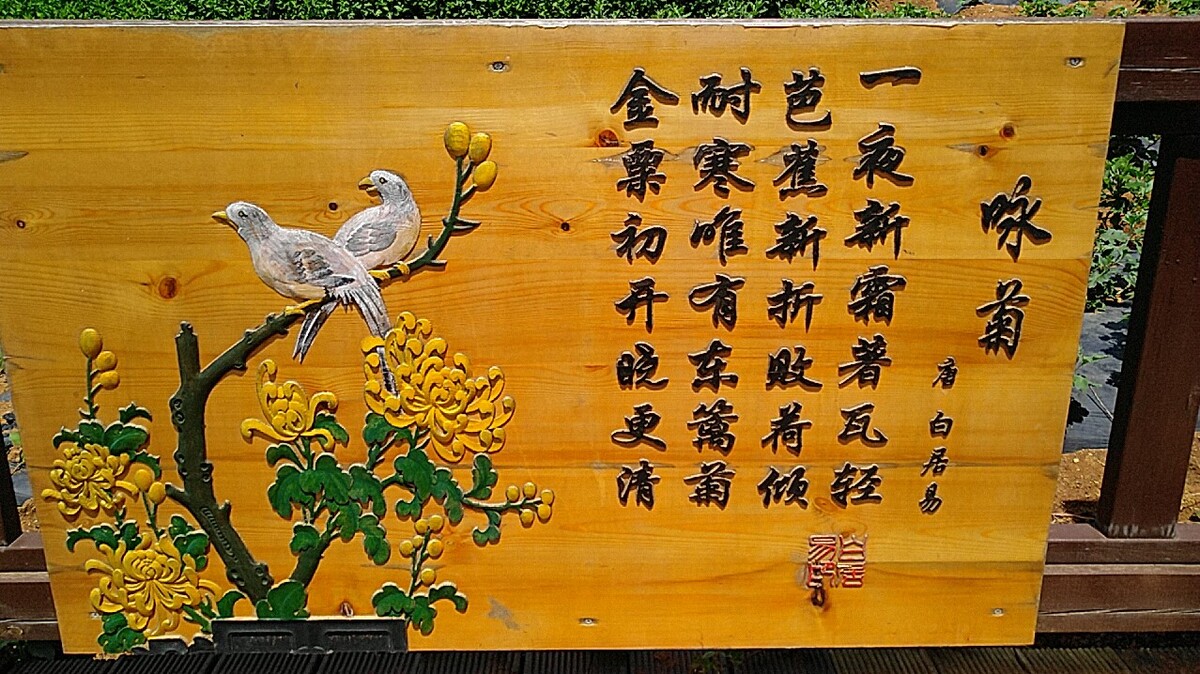 咏菊
唐 白居易
一夜新霜著瓦轻
芭蕉新折败荷倾
耐寒唯有东篱菊
金粟初开晓更清
白居易印